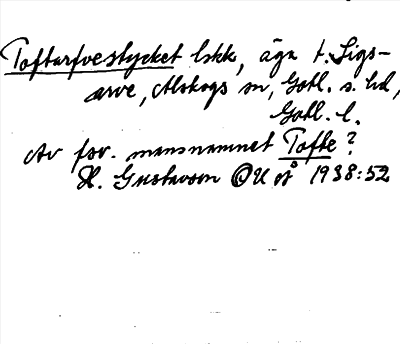 Toftarfvestycket lskk, äga t. Sigs-
arve, Alskogs sn, Gotl. s. hd,
Gotl. l.
Av fsv. mansnamnet Tofte?
H. Gustavson OUÅ 1938:52